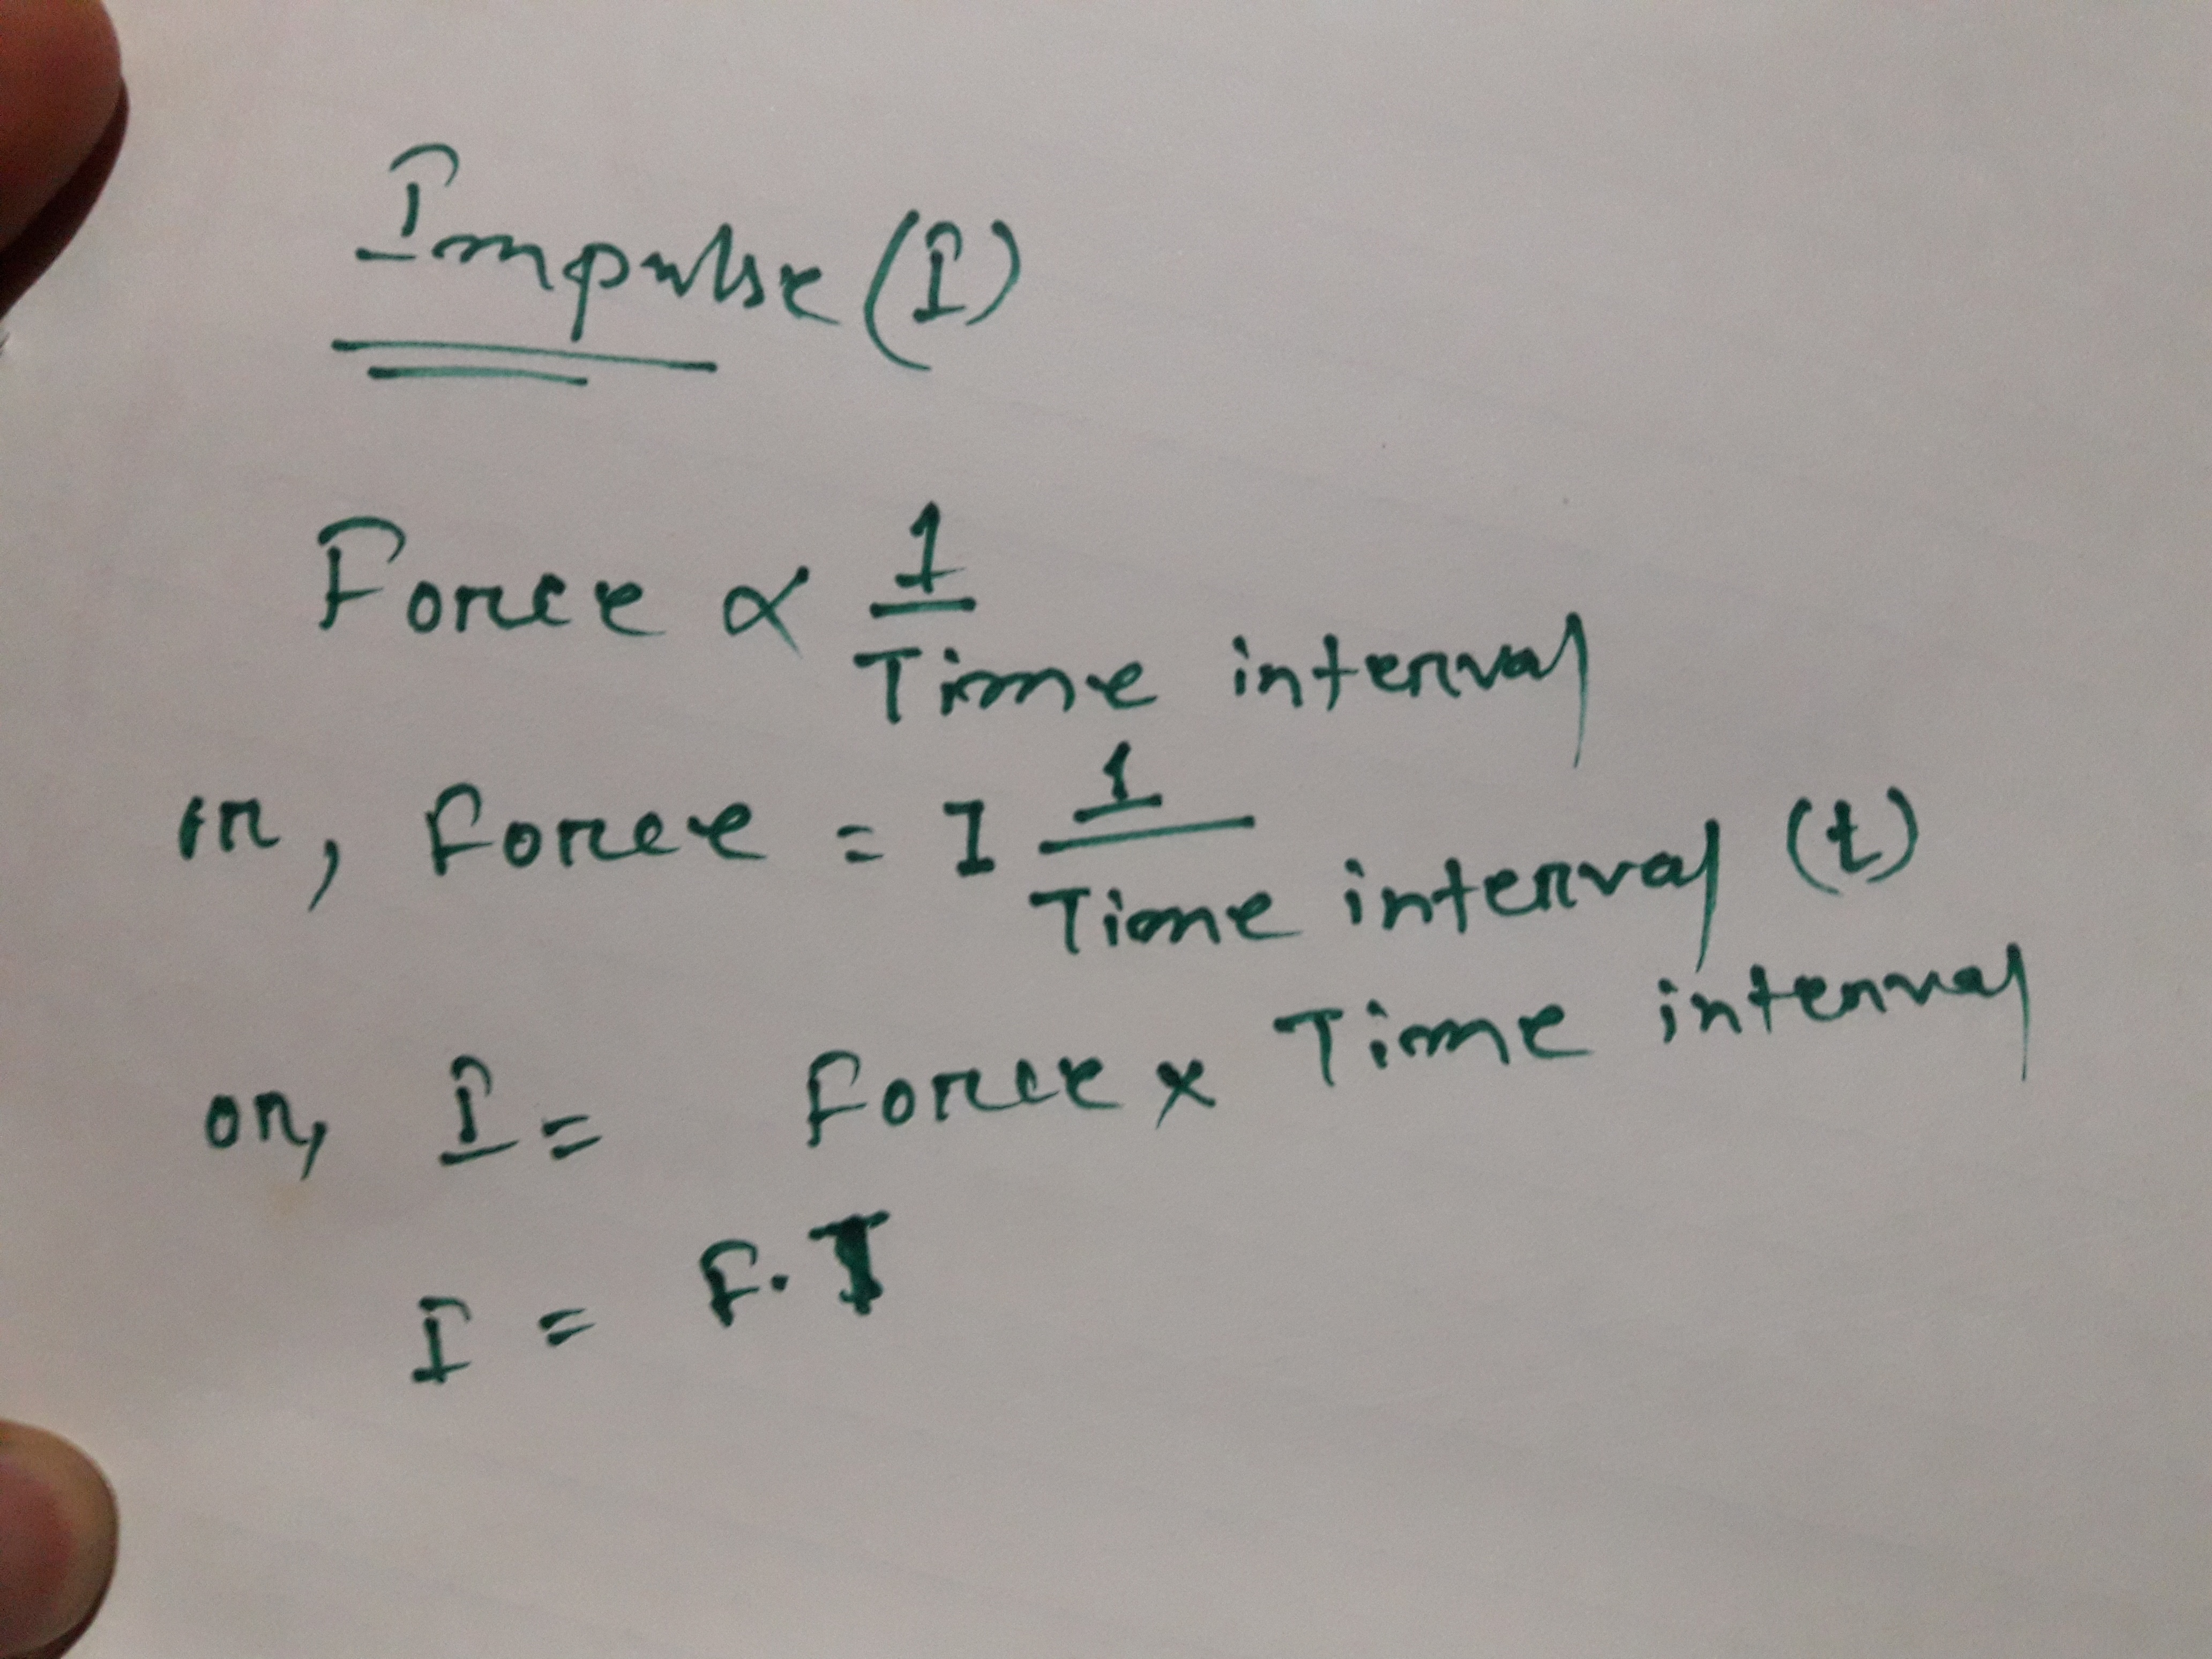 Impulse (I)
Force ∝ 1 / Time interval
or, force = I 1 / Time interval (t)
or, I = force x Time interval
I = F.T